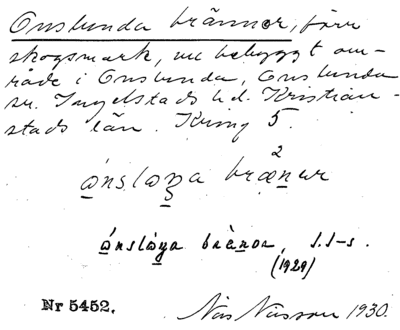 Onslunda bränner, förr
skogsmark, nu bebyggt om-
råde i Onslunda, Onslunda
sn. Ingelstads hd. Kristian-
stads län. Kring 5.
2
ånslåŋa brænər
ånslåŋa brànər, s.l-s.
(1929)
Nr 5452.
Nils Nilsson 1930.